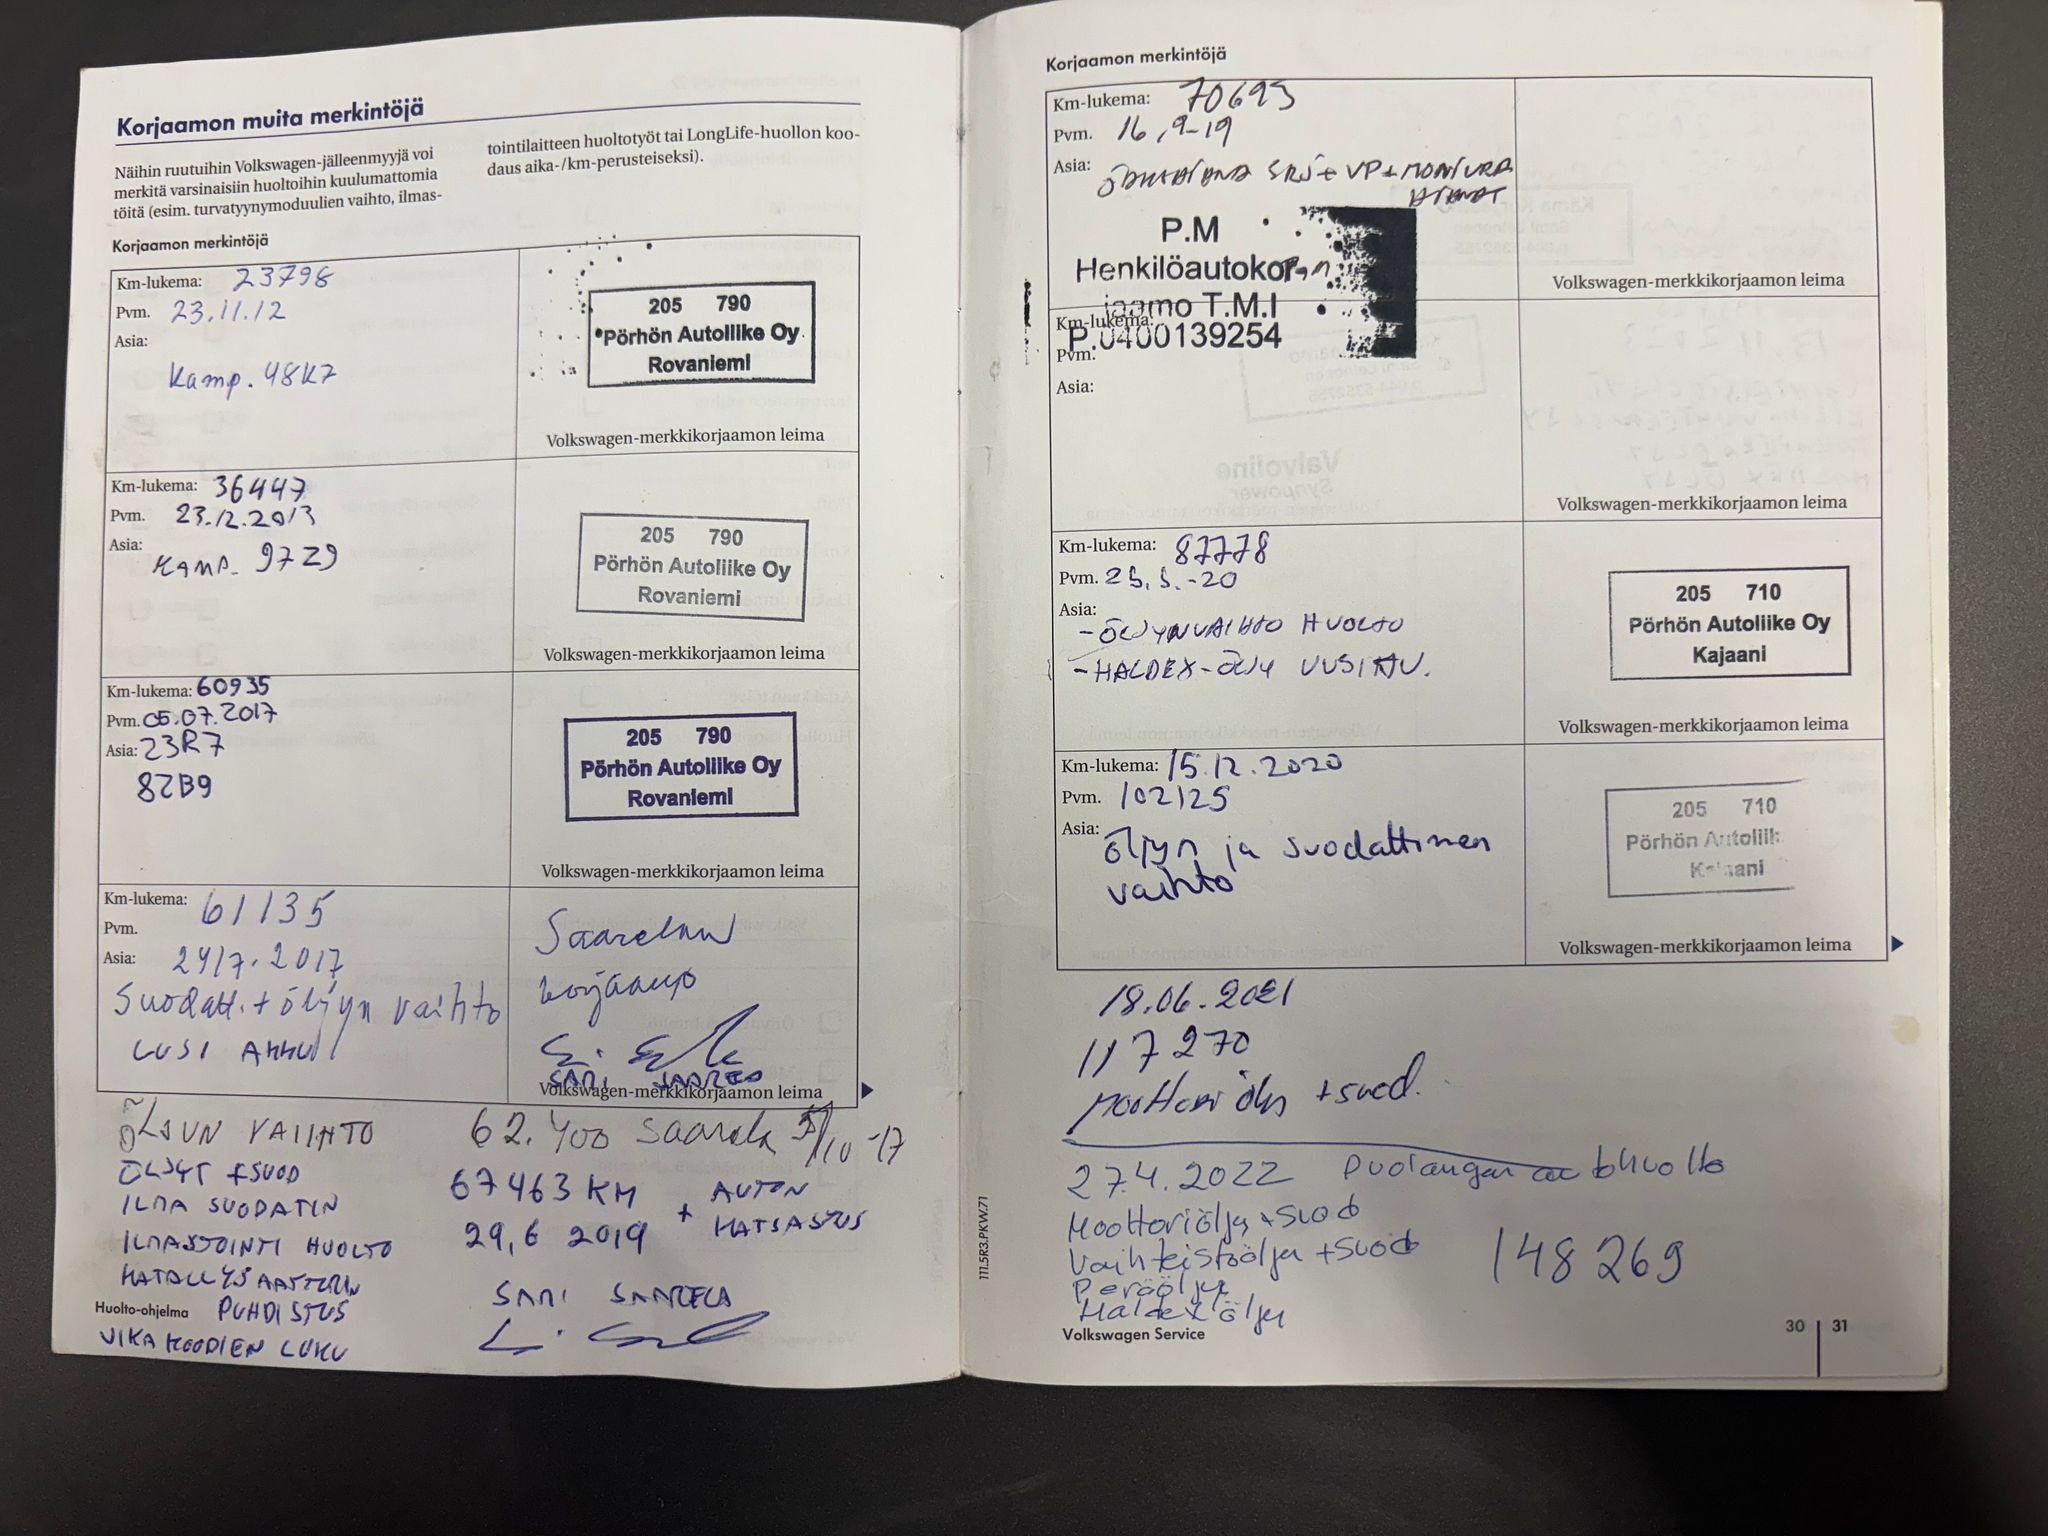 Korjaamon muita merkintöjä
Näihin ruutuihin Volkswagen-jälleenmyyjä voi
merkitä varsinaisiin huoltoihin kuulumattomia
töitä (esim. turvatyynymoduulien vaihto, ilmas-
tointilaitteen huoltotyöt tai LongLife-huollon koo-
daus aika-/km-perusteiseksi).
Korjaamon merkintöjä
Km-lukema: 23798
Pvm. 23.11.12
Asia:
Kamp. 48K7
205 790
Pörhön Autoliike Oy
Rovaniemi
Volkswagen-merkkikorjaamon leima
Km-lukema: 36447
Pvm. 23.12.2013
Asia:
KAMP. 97Z9
205 790
Pörhön Autoliike Oy
Rovaniemi
Volkswagen-merkkikorjaamon leima
Km-lukema: 60935
Pvm. 05.07.2017
Asia: 23R7
82B9
205 790
Pörhön Autoliike Oy
Rovaniemi
Volkswagen-merkkikorjaamon leima
Km-lukema: 61135
Pvm.
Asia: 24/7.2017
Suodatt. + öljyn vaihto
UUSI AKKU
Saarelan
korjaamo
SARI SAARELA
Volkswagen-merkkikorjaamon leima
ÖLJYN VAIHTO 62.400 Saarela 5/10-17
ÖLJYT +SUOD
ILMA SUODATIN
ILMASTOINTI HUOLTO
KATALLYSAATTORIN
PUHDISTUS
VIKA KOODIEN LUKU
67463 KM
29,6 2019
+ AUTON
KATSASTUS
SARI SAARELA
Huolto-ohjelma
Korjaamon merkintöjä
Km-lukema: 70693
Pvm. 16,9-19
Asia:
P.M
Henkilöautokor-
jaamo T.M.I
P.0400139254
Volkswagen-merkkikorjaamon leima
Km-lukema:
Pvm.
Asia:
Volkswagen-merkkikorjaamon leima
Km-lukema: 87778
Pvm. 25.5.-20
Asia:
-ÖLJYNVAIHTO HUOLTO
-HALDEX-ÖLJY UUSITTU.
205 710
Pörhön Autoliike Oy
Kajaani
Volkswagen-merkkikorjaamon leima
Km-lukema: 15.12.2020
Pvm. 102125
Asia: Öljyn ja suodattimen
vaihto
205 710
Pörhön Autoliik
Kajaani
Volkswagen-merkkikorjaamon leima
18.06.2021
117270
Moottoriöljy + suod.
27.4.2022 Puolangan autohuolto
Moottoriöljy + suod
Vaihteistoöljy + suod
Peräöljy
Haldex öljy
148269
Volkswagen Service
30 31
111.5R3.PKW.71